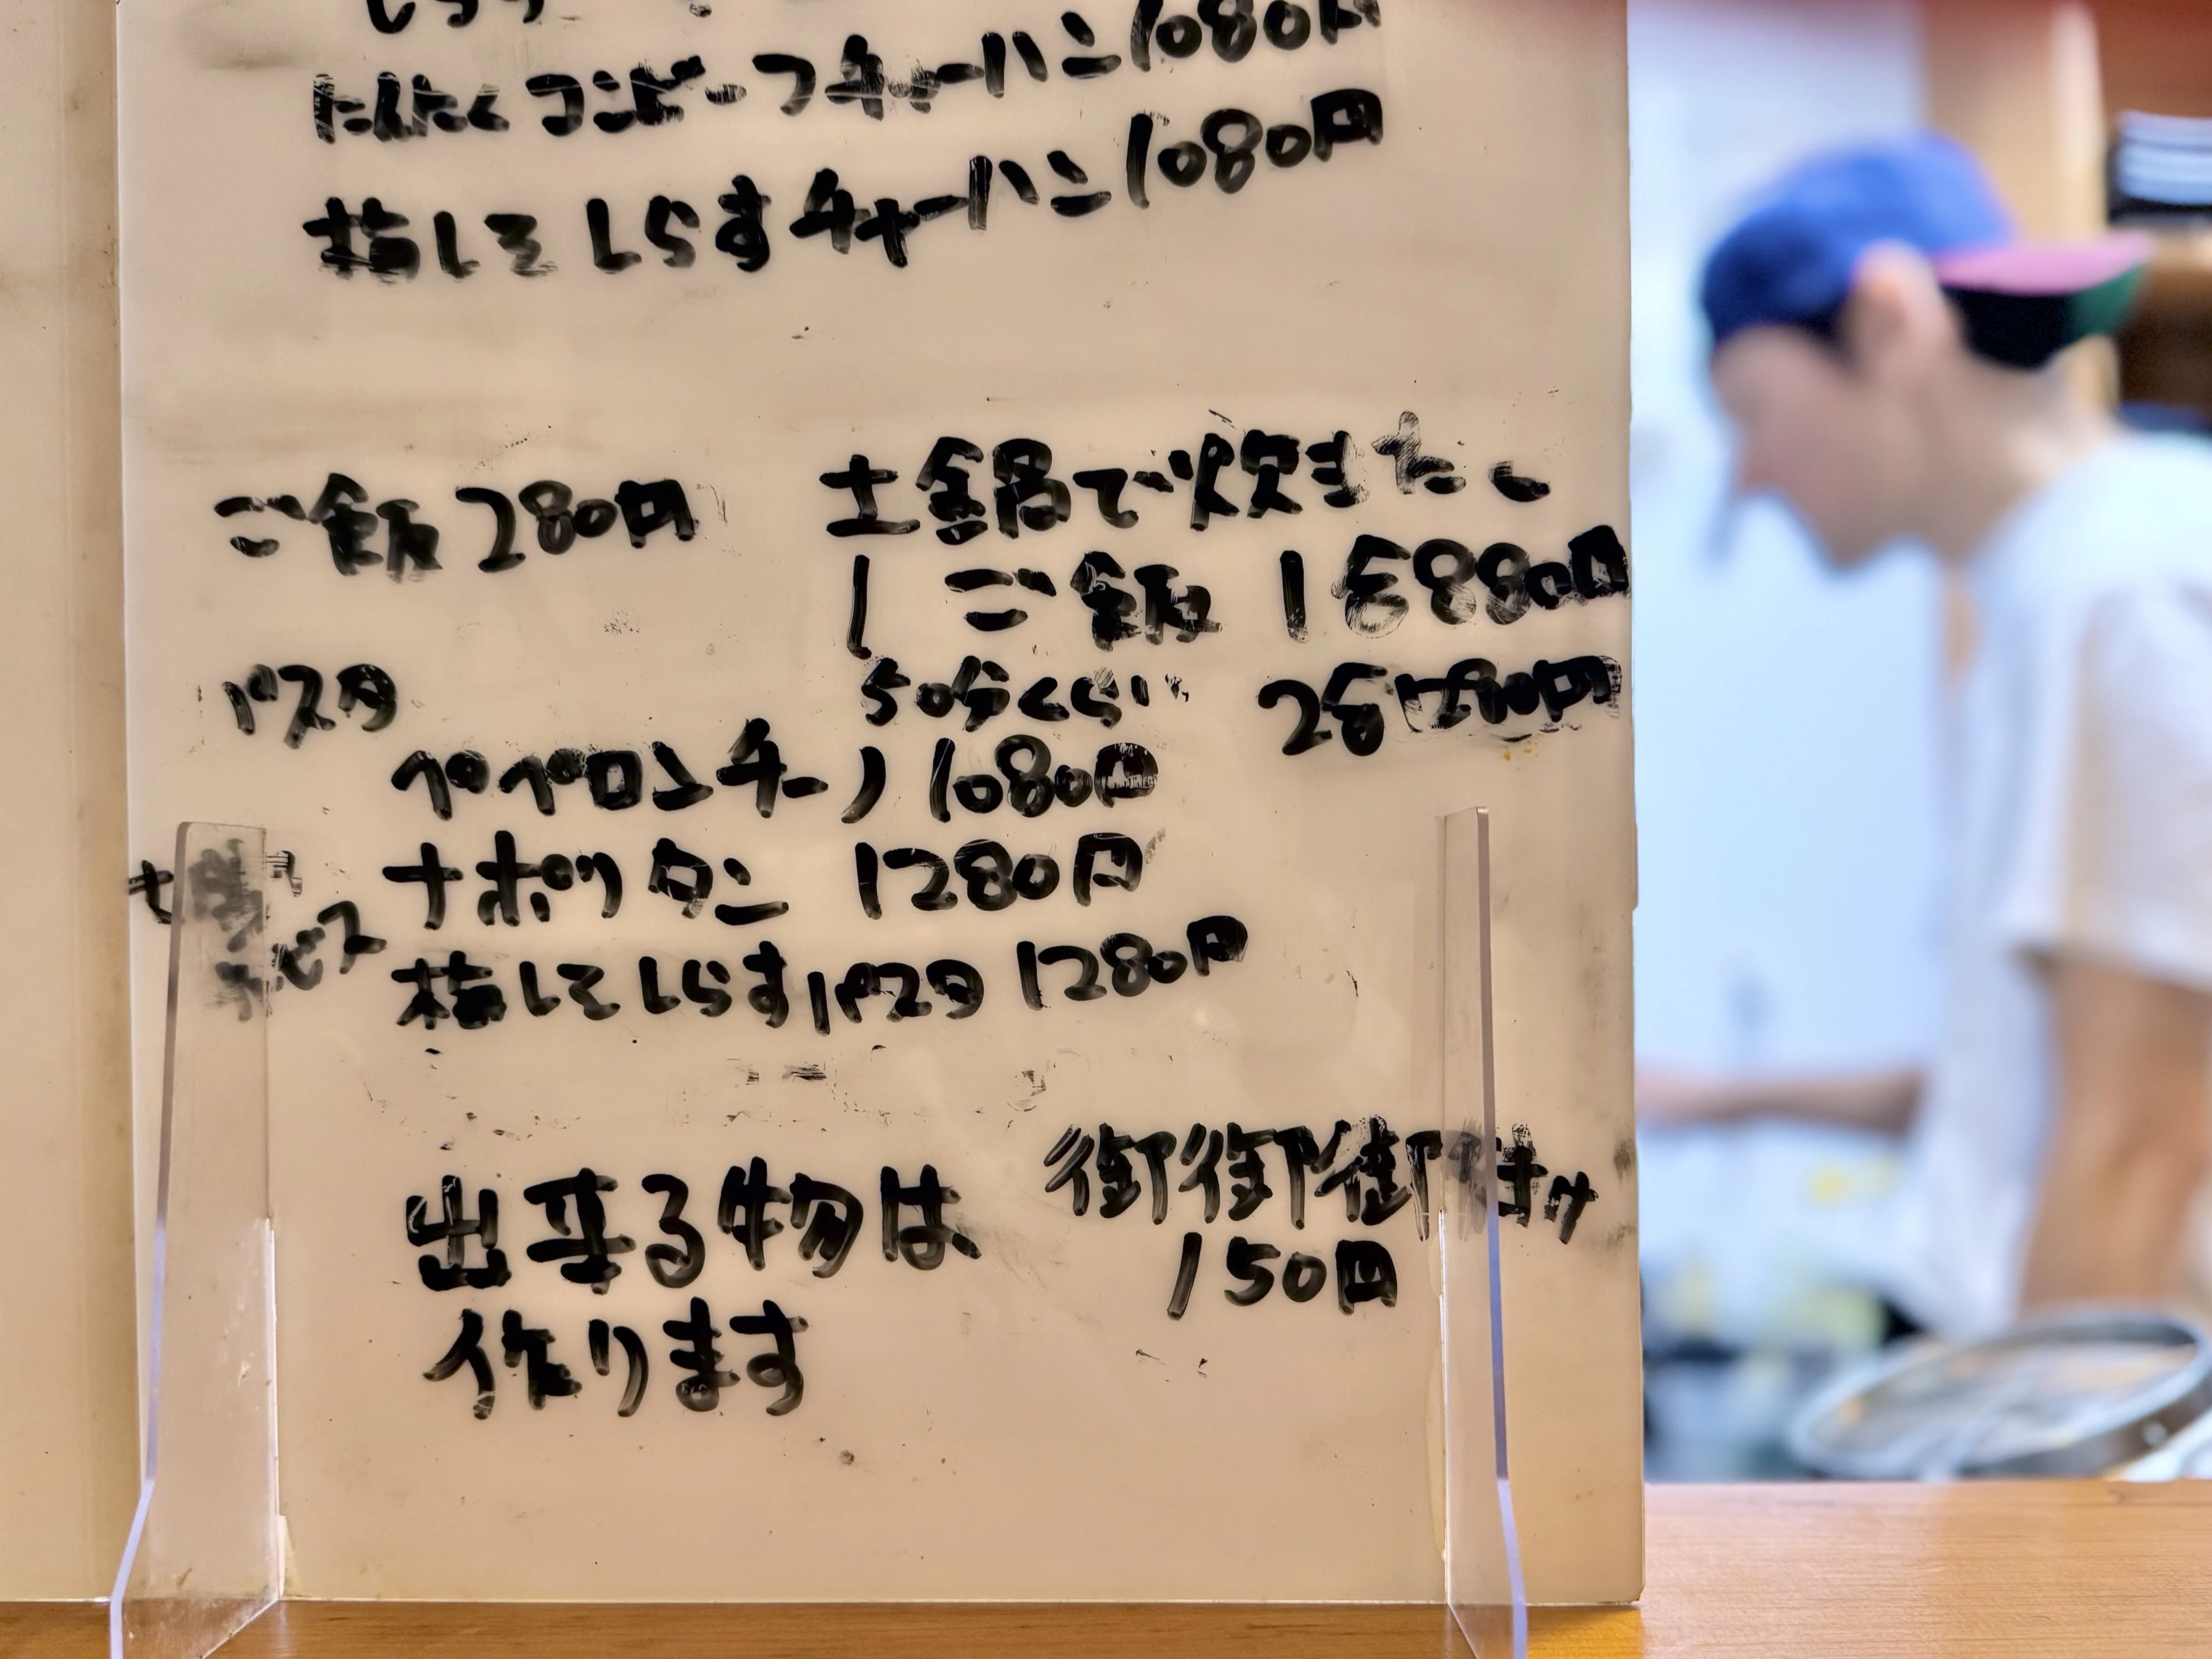 にんにくコンビーフチャーハン1080円
梅しそしらすチャーハン1080円
ご飯 280円
土鍋で炊きたて
ご飯 1合880円
50分くらい 2合
パスタ
ペペロンチーノ 1080円
ナポリタン 1280円
梅しそしらすパスタ 1280円
出来る物は
作ります
150円